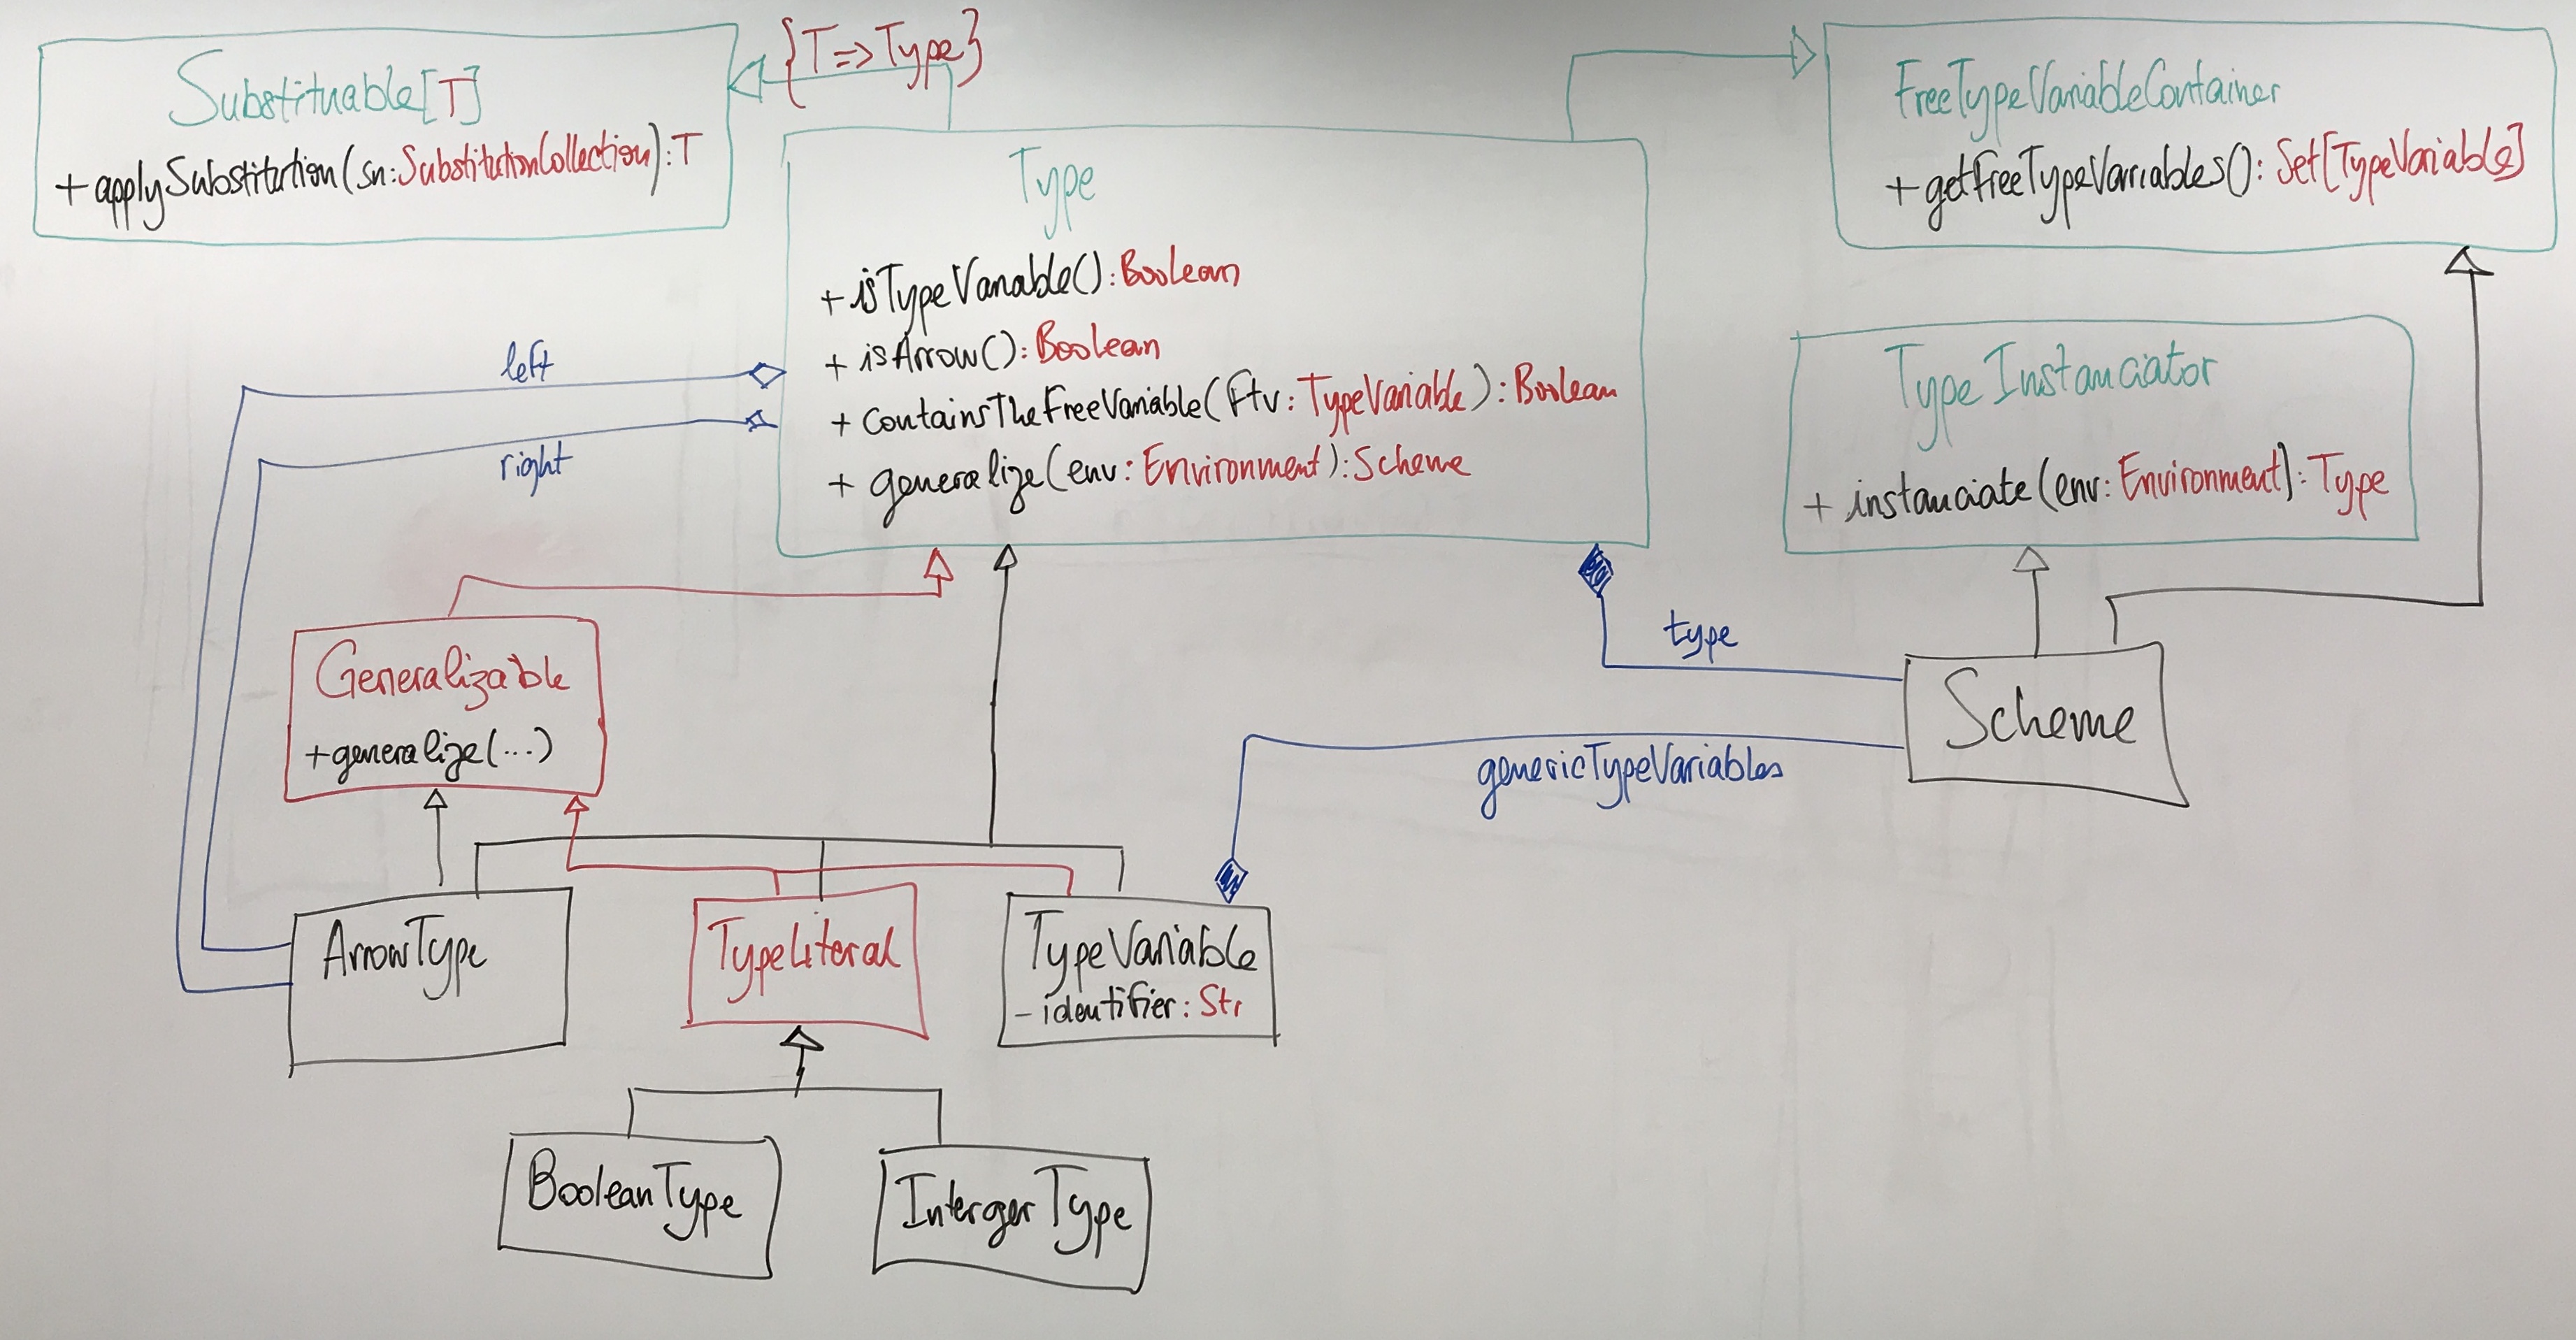 {T=>Type}
Substituable[T]
+ applySubstitution(sn:SubstitutionCollection):T
FreeTypeVariableContainer
+ getFreeTypeVariables(): Set[TypeVariable]
Type
+ isTypeVariable():Boolean
+ isArrow():Boolean
+ containsTheFreeVariable(ftv:TypeVariable):Boolean
+ generalize(env:Environment):Scheme
left
right
TypeInstanciator
+ instanciate(env:Environment):Type
type
Generalizable
+generalize(...)
Scheme
genericTypeVariables
ArrowType
TypeLiteral
TypeVariable
- identifier: Str
BooleanType
IntergerType